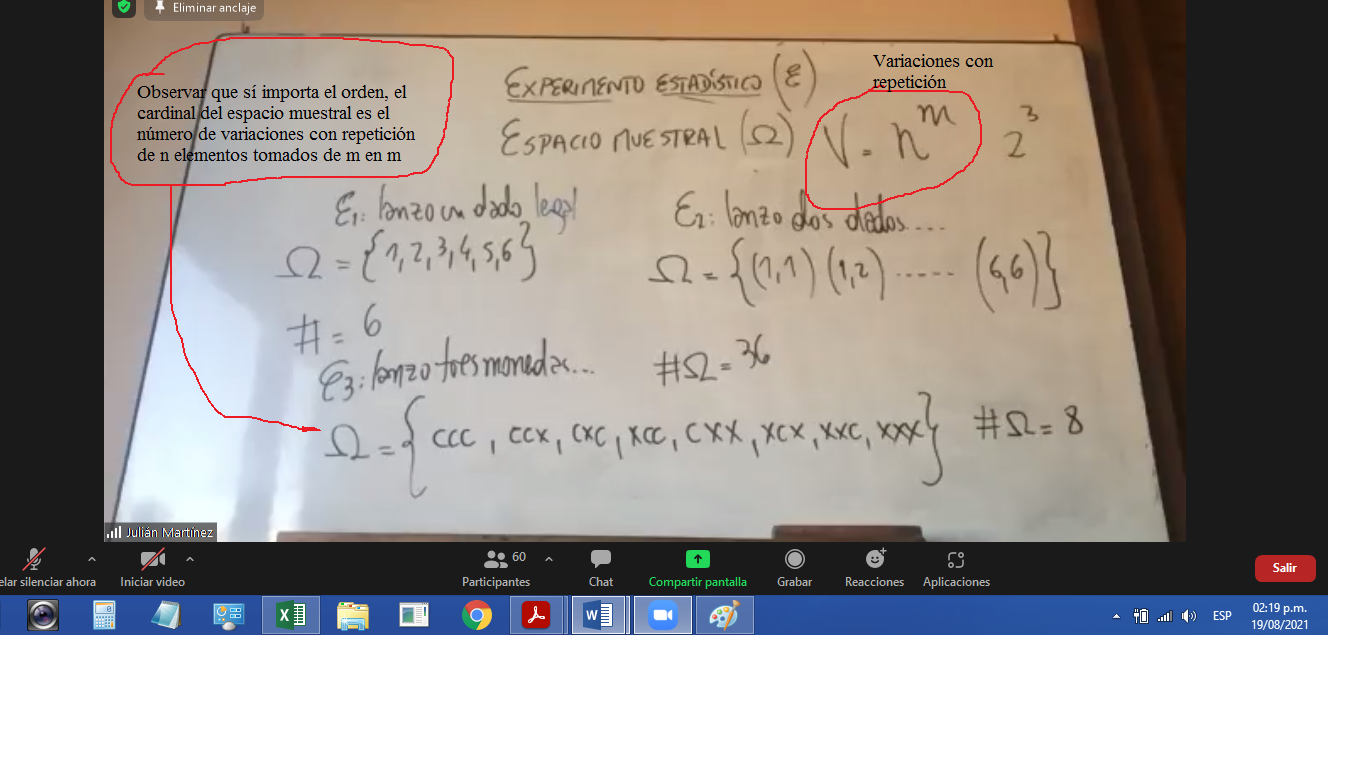 Eliminar anclaje
Observar que sí importa el orden, el
cardinal del espacio muestral es el
número de variaciones con repetición
de n elementos tomados de m en m
EXPERIMENTO ESTADÍSTICO (Ɛ)
Variaciones con
repetición
ESPACIO MUESTRAL (Ω) V = n^m 2^3
Ɛ1: lanzo un dado legal
Ω = {1, 2, 3, 4, 5, 6}
# = 6
Ɛ2: lanzo dos dados....
Ω = {(1,1) (1,2) ..... (6,6)}
#Ω = 36
Ɛ3: lanzo tres monedas...
Ω = {CCC, CCX, CXC, XCC, CXX, XCX, XXC, XXX} #Ω = 8
Julián Martínez
elar silenciar ahora
Iniciar video
60
Participantes
Chat
Compartir pantalla
Grabar
Reacciones
Aplicaciones
Salir
ESP
02:19 p.m.
19/08/2021